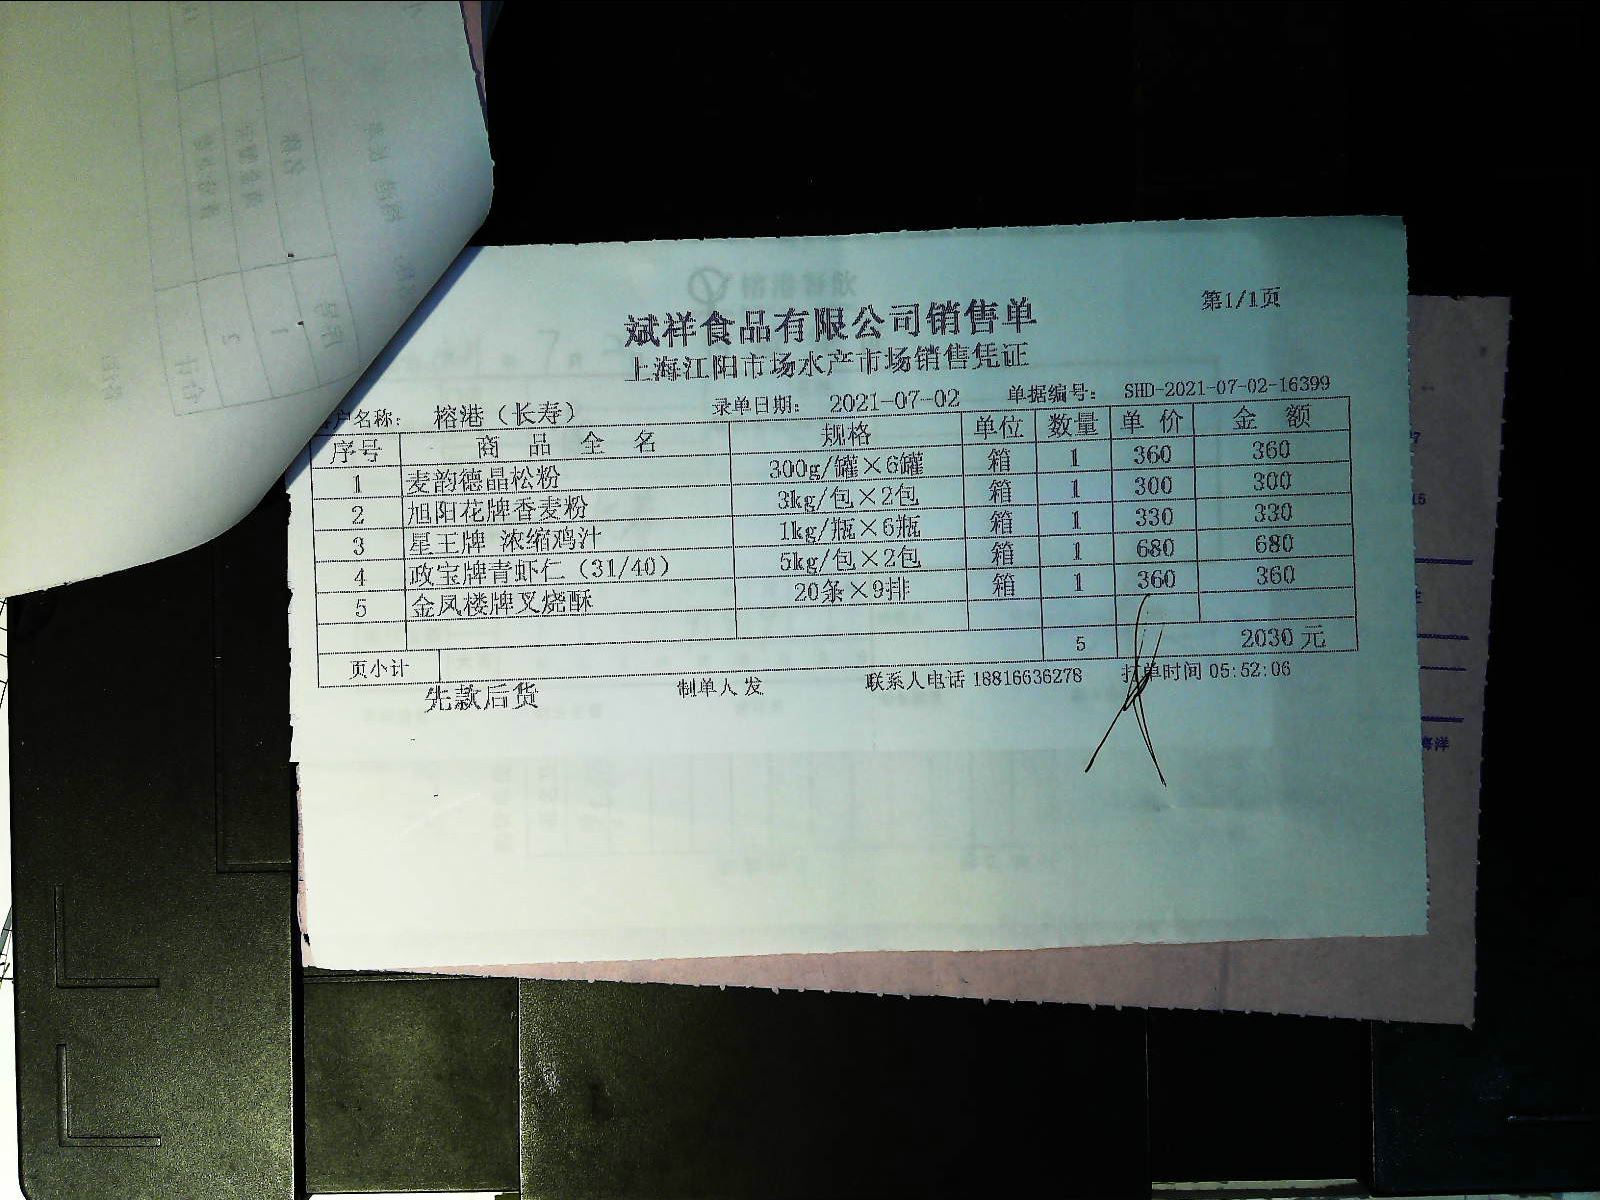 第1/1页
斌祥食品有限公司销售单
上海江阳市场水产市场销售凭证
户名称： 榕港（长寿） 录单日期： 2021-07-02 单据编号： SHD-2021-07-02-16399
序号 商 品 全 名 规格 单位 数量 单 价 金 额
1 麦韵德晶松粉 300g/罐×6罐 箱 1 360 360
2 旭阳花牌香麦粉 3kg/包×2包 箱 1 300 300
3 星王牌 浓缩鸡汁 1kg/瓶×6瓶 箱 1 330 330
4 政宝牌青虾仁（31/40） 5kg/包×2包 箱 1 680 680
5 金凤楼牌叉烧酥 20条×9排 箱 1 360 360
页小计 5 2030 元
先款后货 制单人 发 联系人电话 18816636278 打单时间 05:52:06